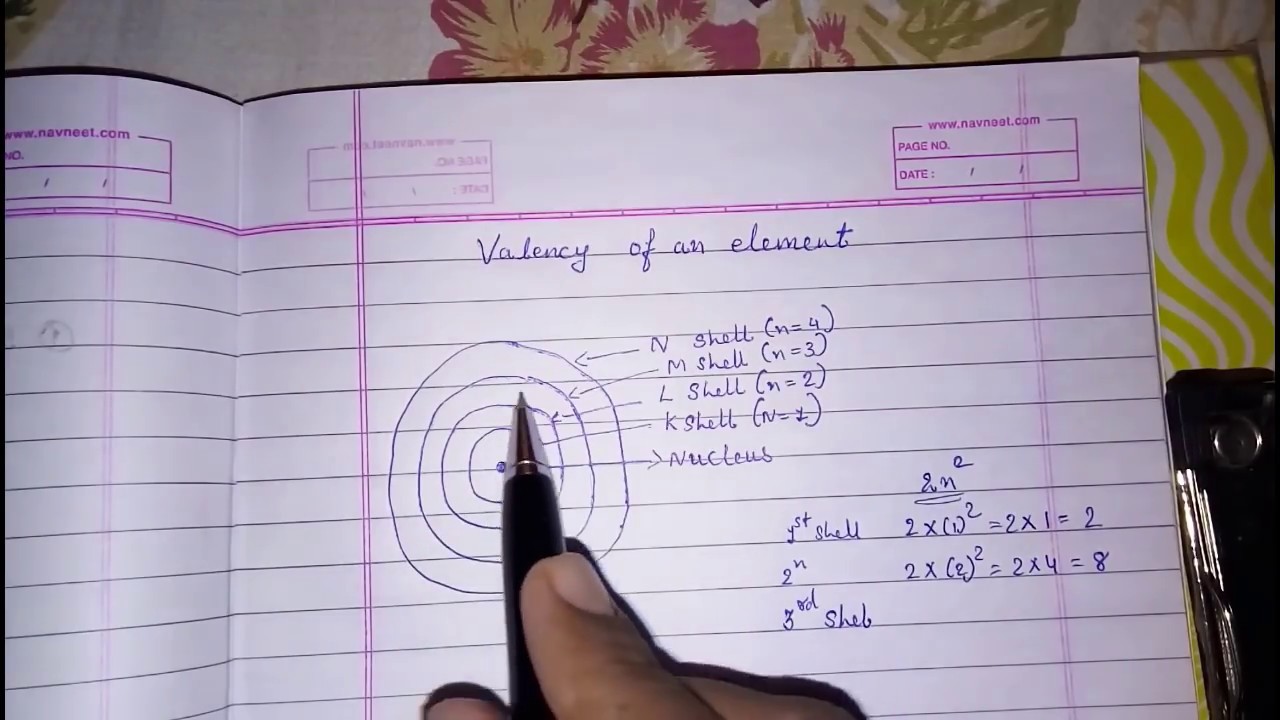 www.navneet.com
NO.
/ /
www.navneet.com
PAGE NO.
DATE : / /
www.navneet.com
PAGE NO.
DATE : / /
Valency of an element
N shell (n=4)
M shell (n=3)
L shell (n=2)
K shell (N=1)
Nucleus
2n²
1st shell 2×(1)²=2×1=2
2n 2×(2)²=2×4=8
3rd Shel